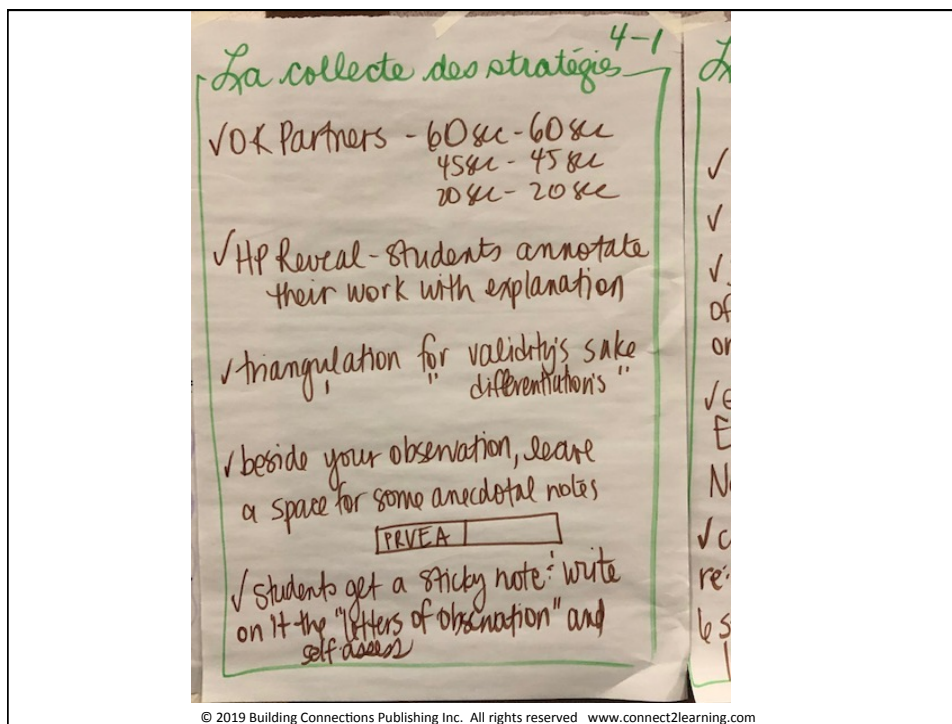 4-1
La collecte des stratégies
✓OK Partners - 60 sec - 60 sec
45 sec - 45 sec
20 sec - 20 sec
✓HP Reveal - Students annotate
their work with explanation
✓triangulation for validity's sake
" " differentiation's "
✓beside your observation, leave
a space for some anecdotal notes
PRVEA
✓Students get a sticky note: write
on it the "letters of observation" and
self-assess
L
✓
✓
✓
of
or
✓e
E
N
✓c
re
6 s
© 2019 Building Connections Publishing Inc. All rights reserved www.connect2learning.com